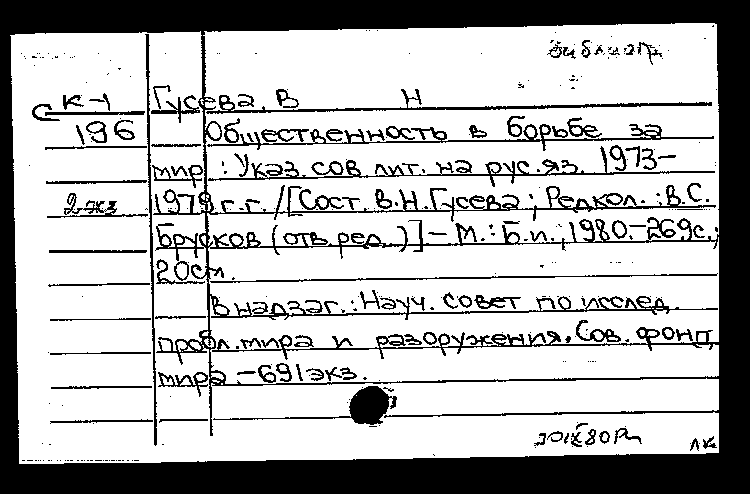 Библиогр
К-1 Гусева. В Н
196 Общественность в борьбе за
мир: Указ. сов. лит. на рус. яз. 1973-
2 экз 1979 г.г. /[Сост. В.Н. Гусева; Редкол.: В.С.
Брусков (отв. ред.)] - М.: Б.и.; 1980. - 269 с.;
20 см.
В надзаг.: Науч. совет по исслед.
пробл. мира и разоружения. Сов. фонд
мира. - 691 экз.